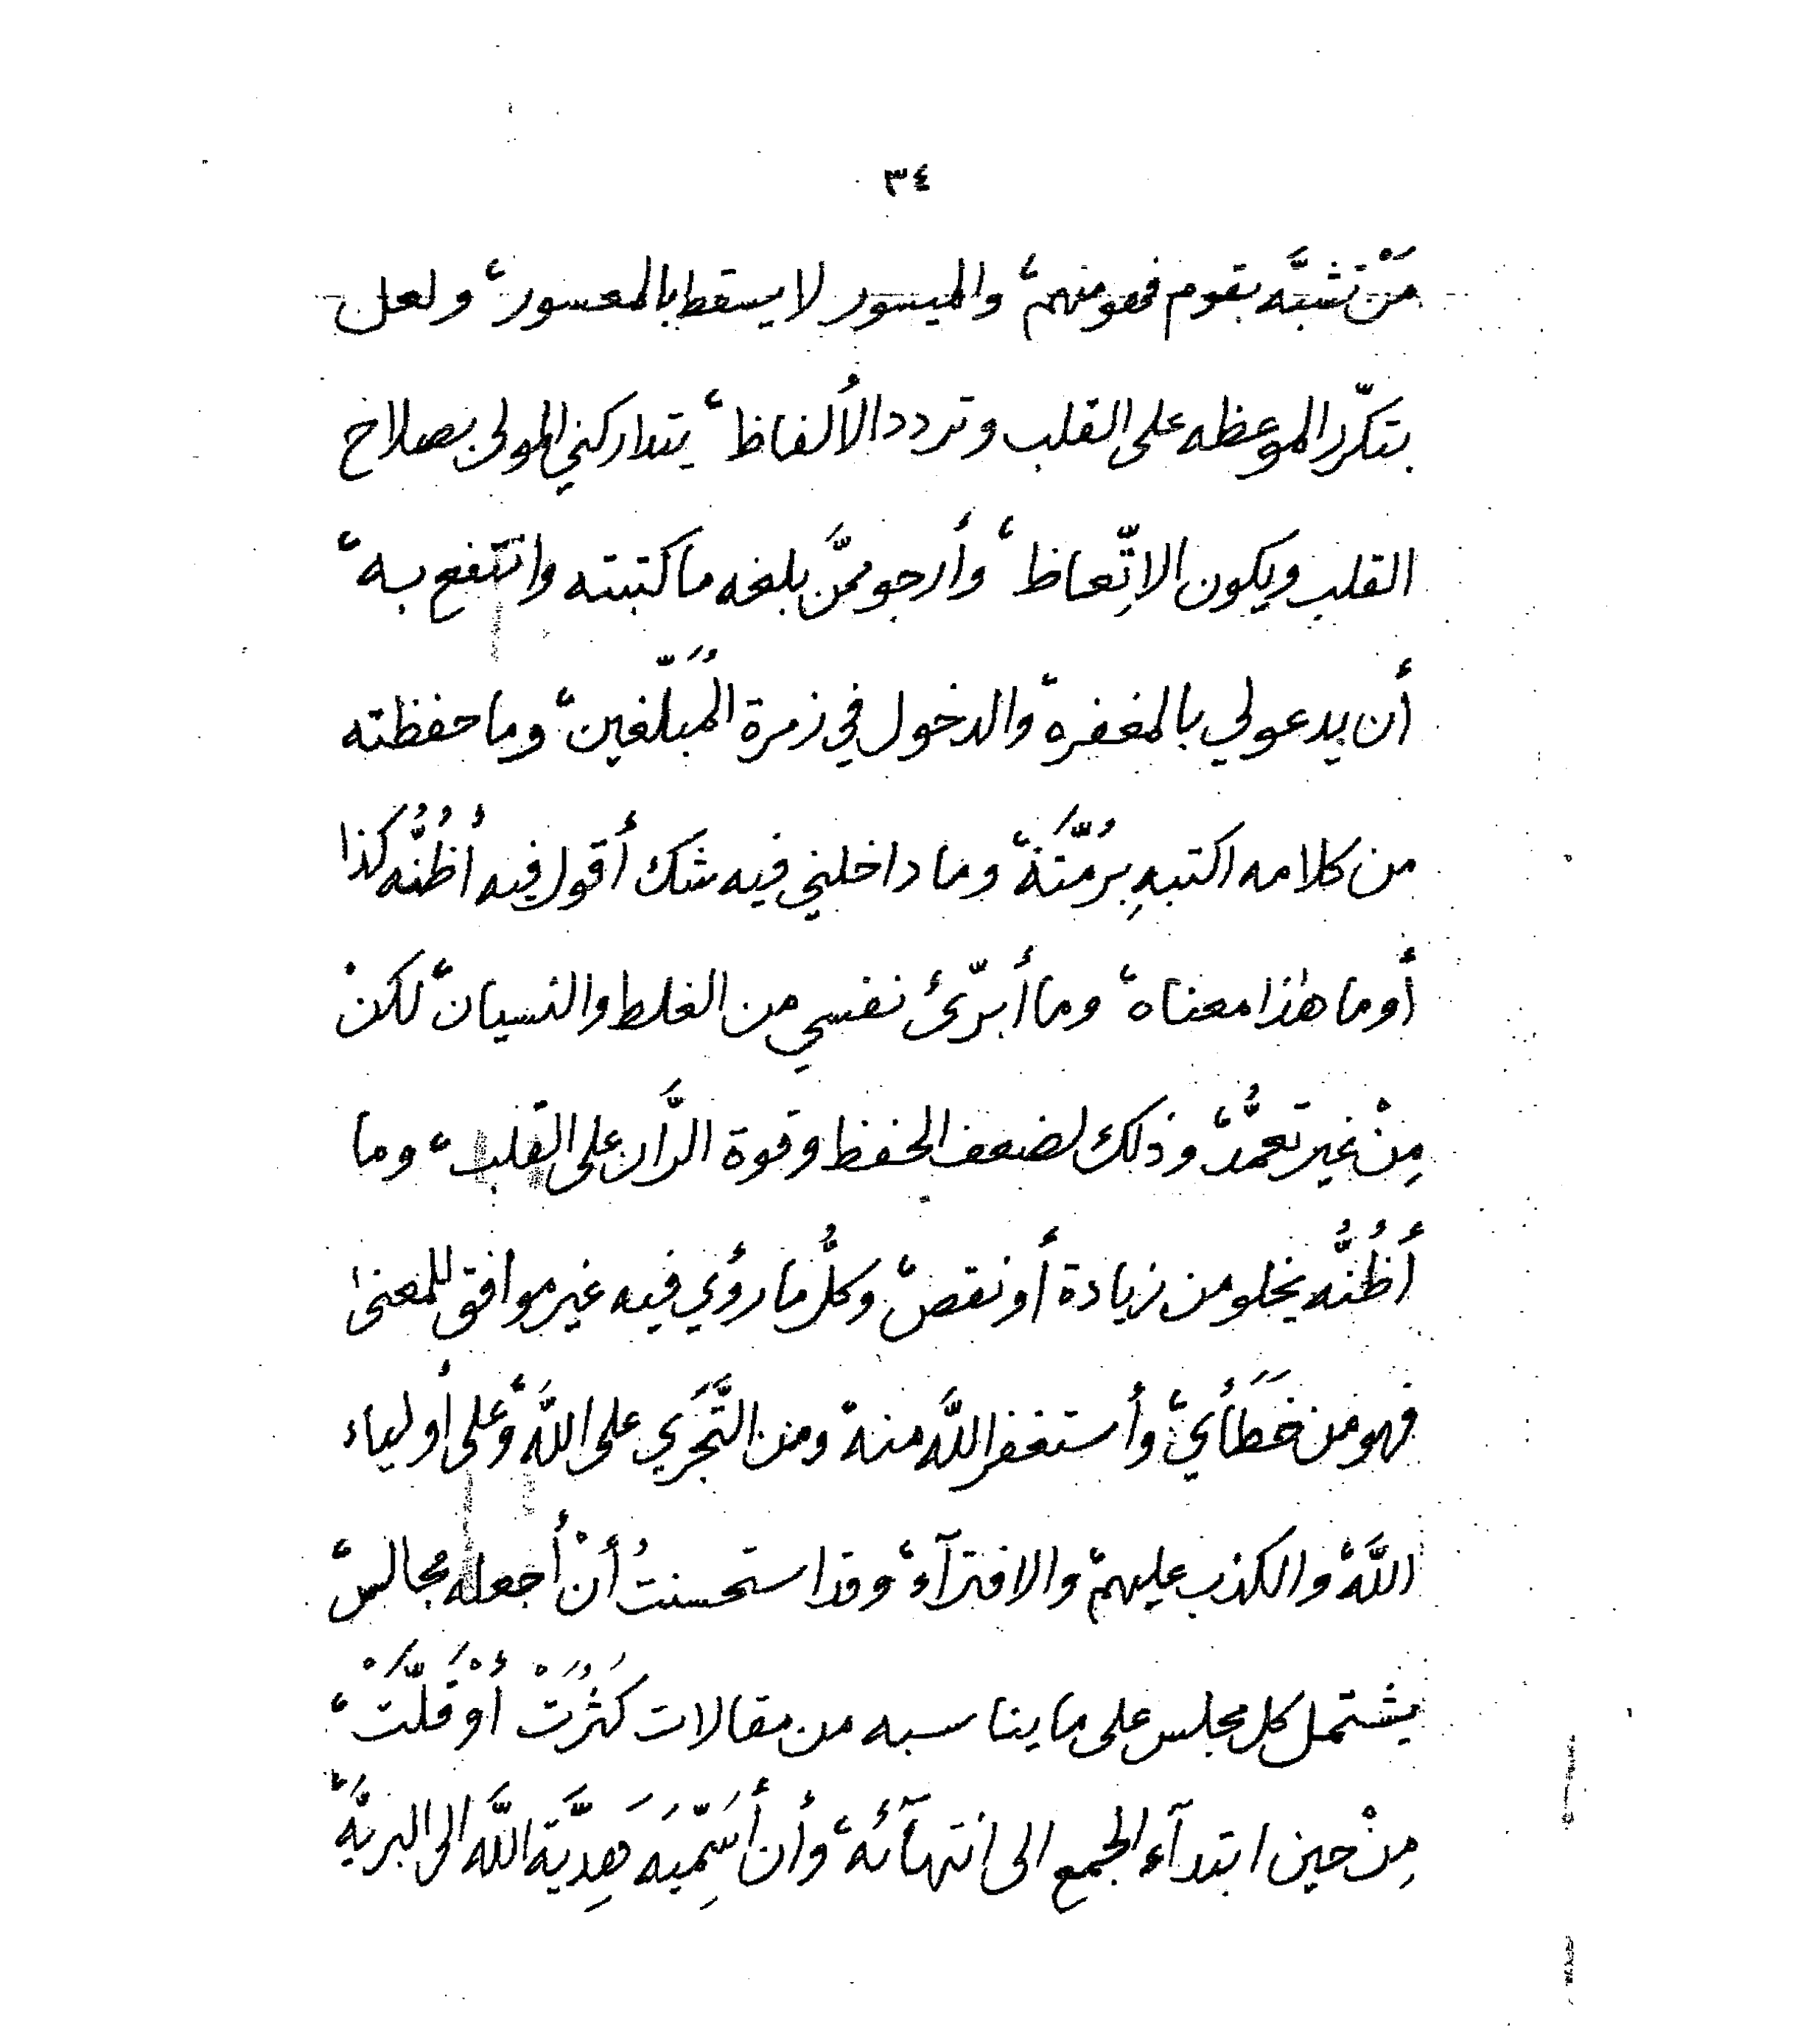 ٣٤
مَنْ تشبَّه بقوم فهو منهم، والميسور لا يسقط بالمعسور، ولعل
بتكرّر الموعظه على القلب وتردد الألفاظ، يتداركني المولى بصلاح
القلب ويكون الاتِّعاظ، وأرجو ممَّن بلغه ما كتبته وانتفع به،
أن يدعو لي بالمغفره، والدخول في زمرة المُبَلّغين، وما حفظته
من كلامه اكتبه بِرُمَّته، وما داخلني فيه شك أقول فيه أظُنُّه كَذا
أو ما هٰذا معناه، وما أبرّئ نفسي من الغلط والنسيان، لكنْ
مِنْ غير تعمُّد، وذلك لضعف الحفظ وقوة الرَّان على القلب، وما
أظُنُّه يخلو من زيادة أو نقص، وكلُّ ما رؤي فيه غير موافق للمعنىٰ
فهو من خَطَأي، وأستغفر اللَّه منه، ومن التَّجَرّي على اللَّه، وعلى أولياء
اللَّه، والكذب عليهم، والافترآء، وقد استحسنتُ أنْ أجعله مجالس،
يشتمل كل مجلس على ما يناسبه من مقالات كَثُرَتْ أوْ قَلَّتْ،
مِنْ حين ابتدآء الجمع الى انتهآئه، وأن أُسَمِّيَه هَدِيَّة اللَّه الى البريَّه،